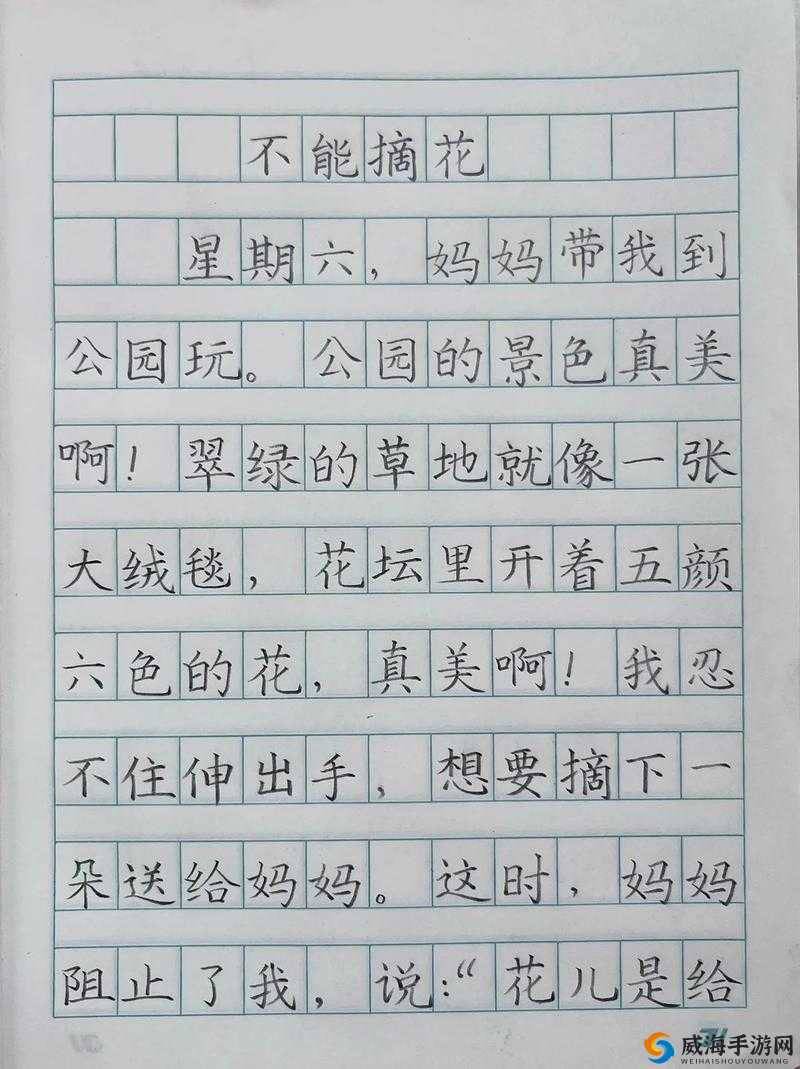 不能摘花
星期六，妈妈带我到
公园玩。公园的景色真美
啊！翠绿的草地就像一张
大绒毯，花坛里开着五颜
六色的花，真美啊！我忍
不住伸出手，想要摘下一
朵送给妈妈。这时，妈妈
阻止了我，说：“花儿是给
威海手游网
WEIHAISHOUYOUWANG